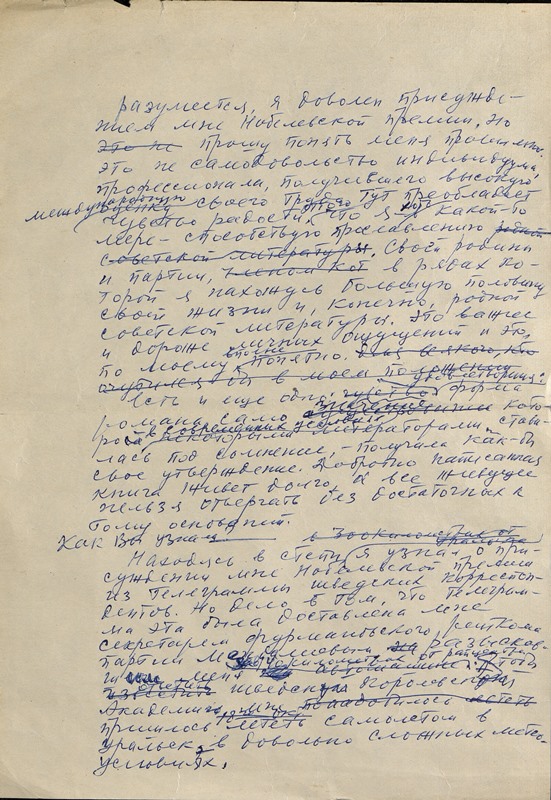 Разумеется, я доволен присужде-
нием мне Нобелевской премии, но
это не прошу понять меня правильно:
это не самодовольство индивидуума,
профессионала, получившего высокую
международную оценку своего труда. Тут преобладает
чувство радости, что я хоть какой-то
мере – способствую прославлению
советской литературы. своей родины
и партии, в рядах ко-
торой я нахожусь большую половину
своей жизни и, конечно, родной
советской литературы. Это важнее
и дороже личных ощущений и это,
по моему вполне понятно. Для всякого, кто
в моем
Есть и еще одно чувство удовлетворения: форма
романа, само кото-
рого в современных условиях некоторыми литераторами стави-
лась под сомнение, – получила как-бы
свое утверждение. Добротно написанная
книга живет долго, а все живущее
нельзя отвергать без достаточных к
тому оснований.
Как Вы узнали
Находясь в степи, я узнал о при-
суждении мне Нобелевской премии
из телеграммы шведских корреспон-
дентов. Но дело в том, что телеграм-
ма эта была доставлена мне
секретарем фурмановского райкома
партии
меня чтобы
известить шведскую королевскую
Академию, мне понадобилось лететь
пришлось лететь самолетом в
Уральск, в довольно сложных метео-
условиях.